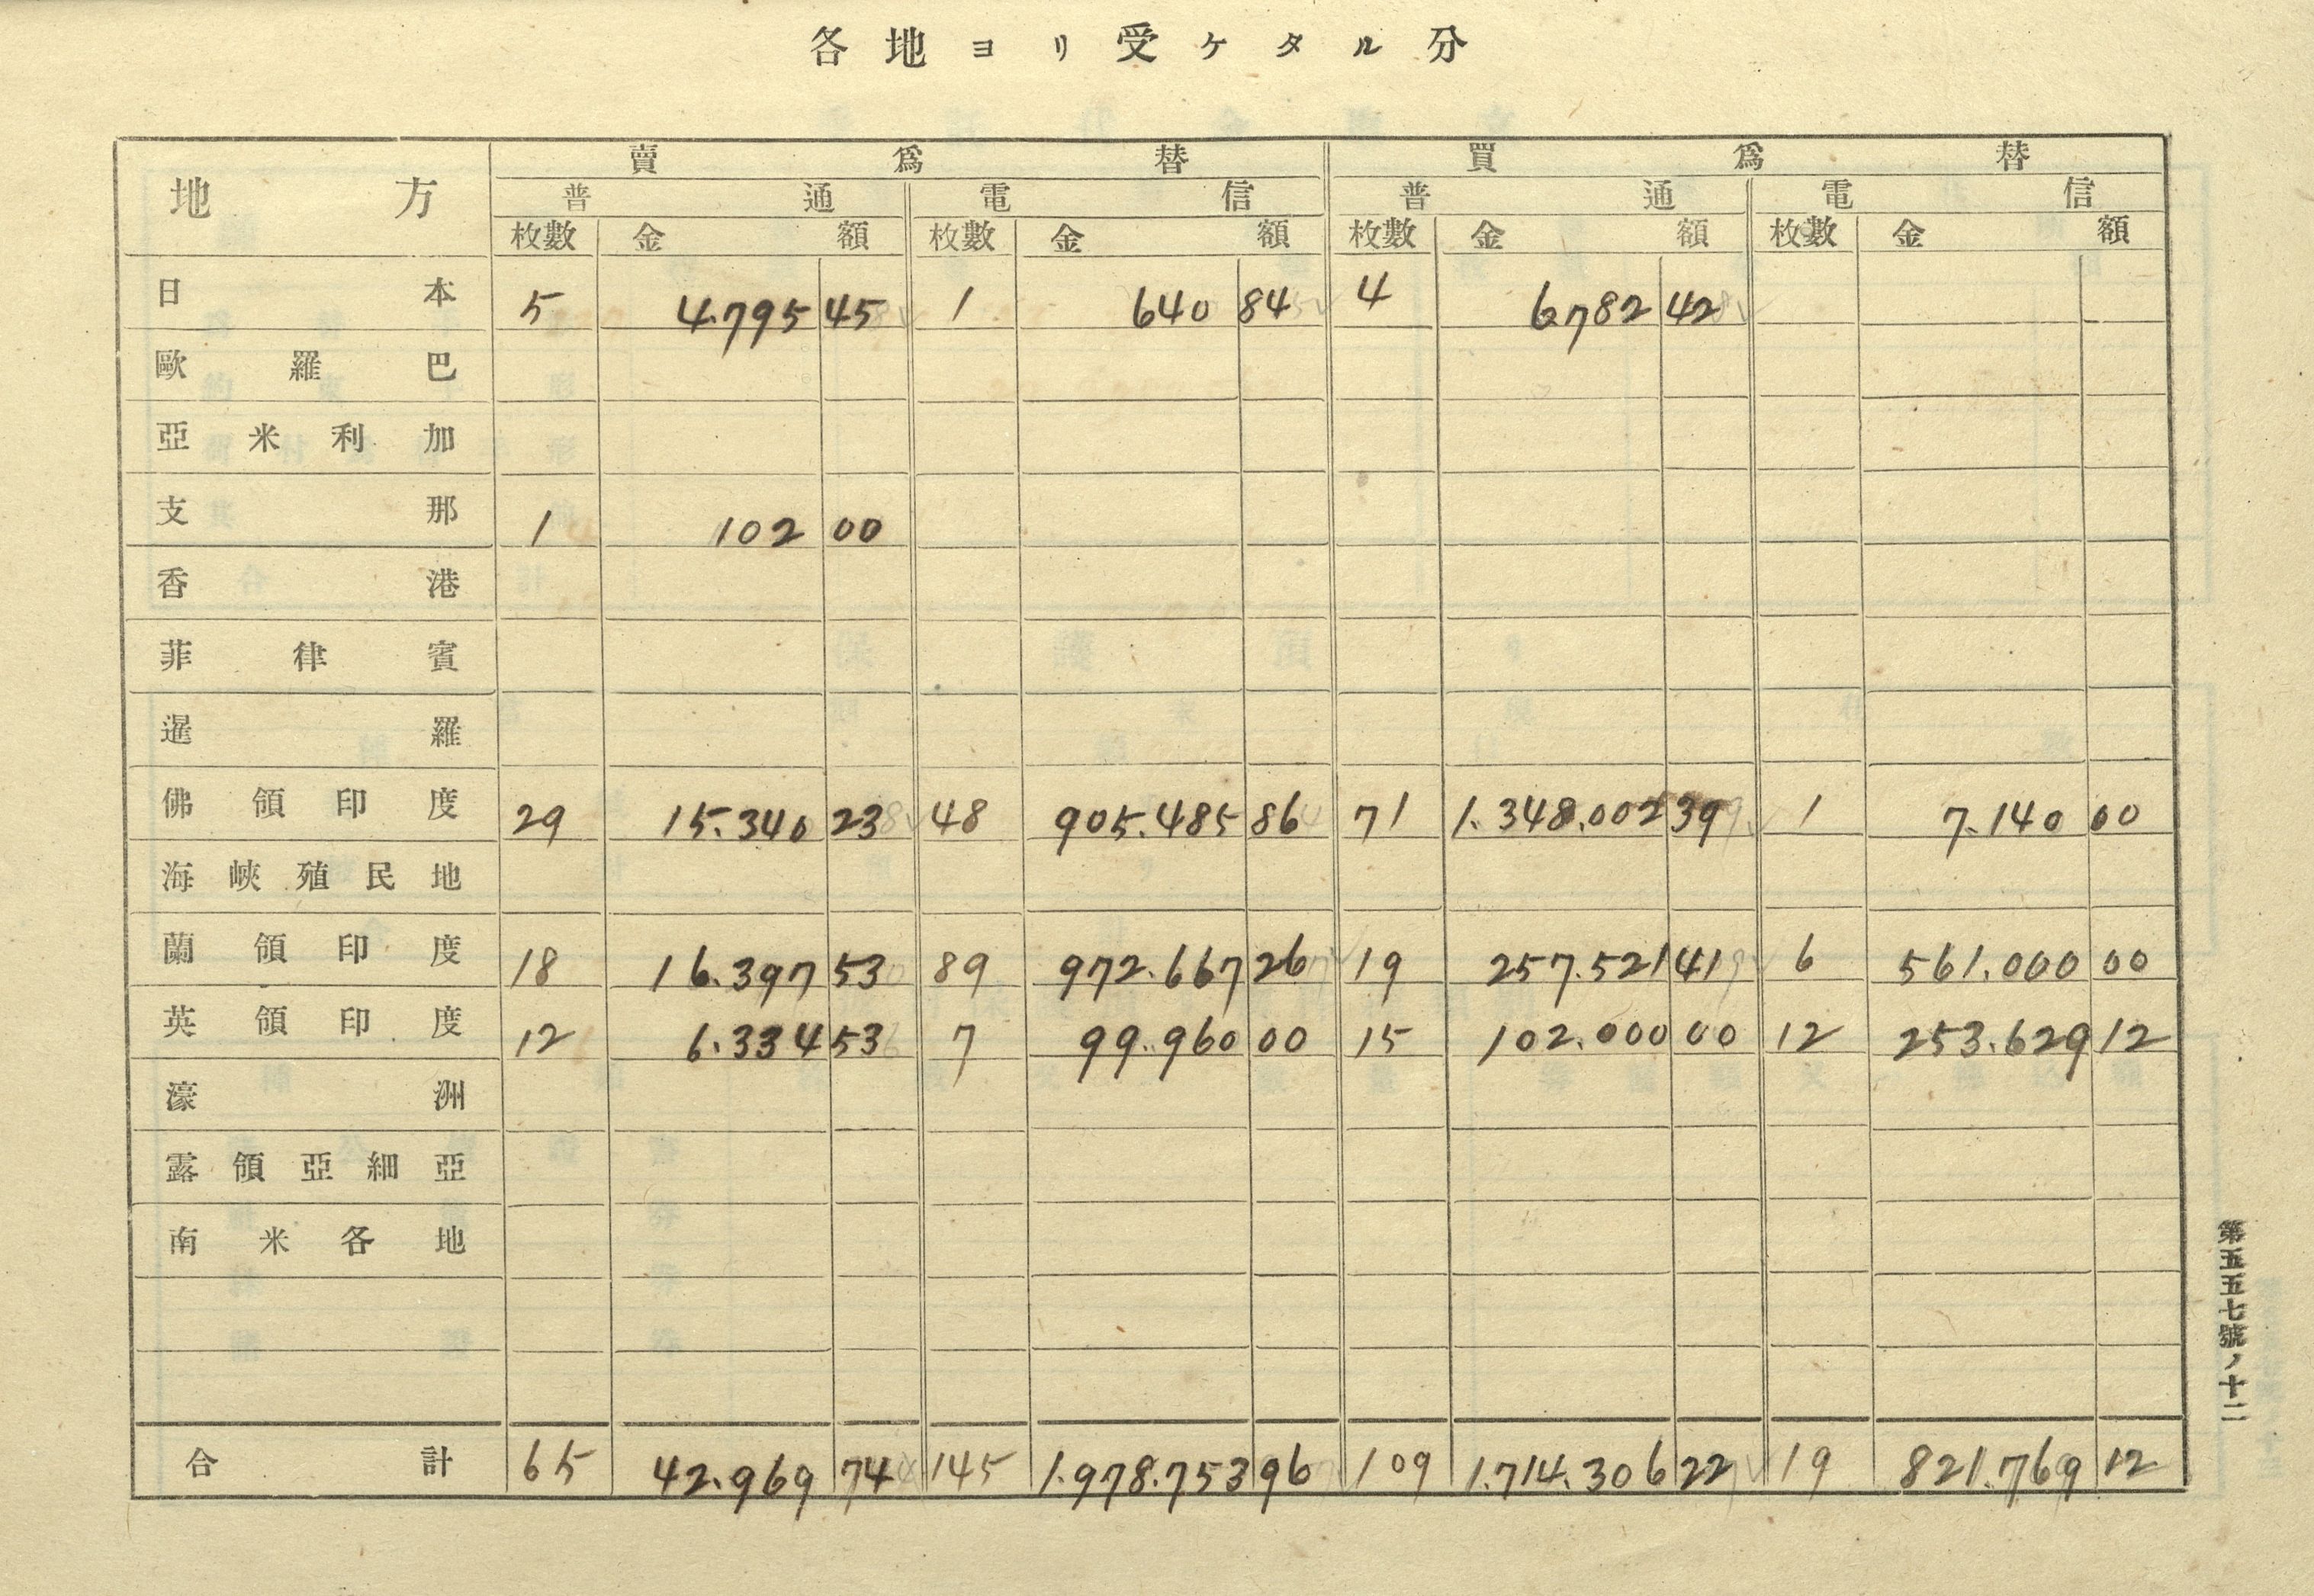 各地ヨリ受ケタル分
地方 賣爲替 買爲替
普通 電信 普通 電信
枚數 金額 枚數 金額 枚數 金額 枚數 金額
日本 5 4.795 45 1 640 84 4 6782 42
歐羅巴
亞米利加
支那 1 102 00
香港
菲律賓
暹羅
佛領印度 29 15.340 23 48 905.485 86 71 1.348.002 39 1 7.140 00
海峽殖民地
蘭領印度 18 16.397 53 89 972.667 26 19 257.521 41 6 561.000 00
英領印度 12 6.334 53 7 99.960 00 15 102.000 00 12 253.629 12
濠洲
露領亞細亞
南米各地
合計 65 42.969 74 145 1.978.753 96 109 1.714.306 22 19 821.769 12
第五五七號ノ十二